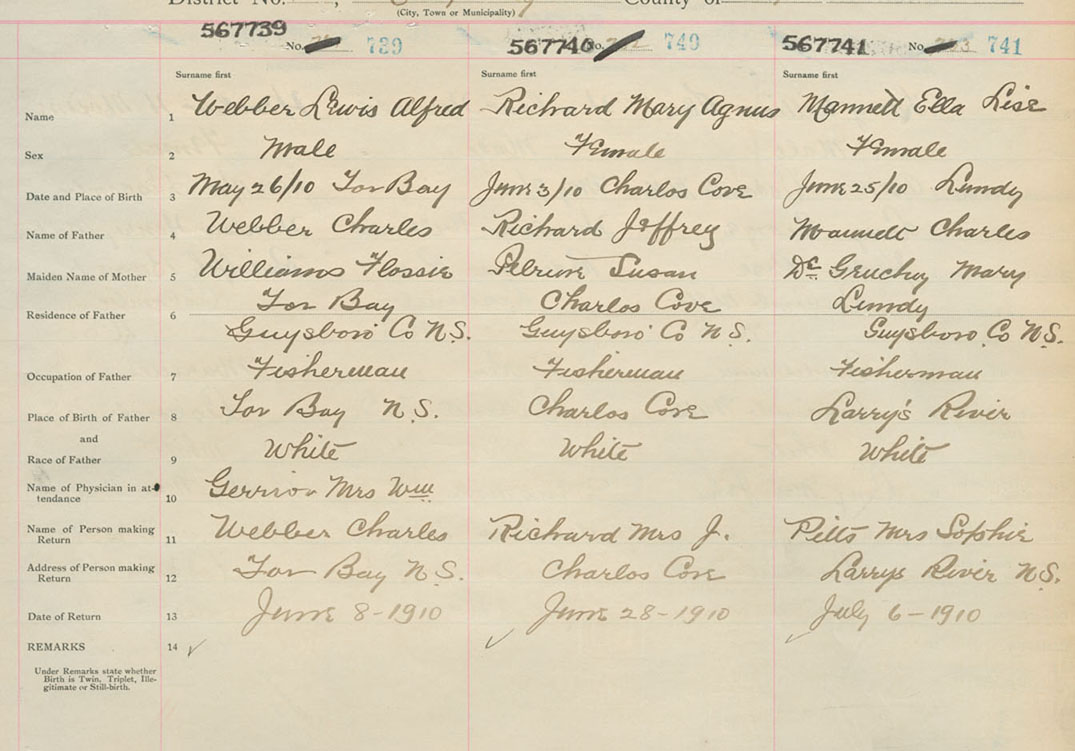 District No. , County of
(City, Town or Municipality)
567739 No. 739 567740 No. 740 567741 No. 741
Surname first Surname first Surname first
Name 1 Webber Lewis Alfred Richard Mary Agnus Mannett Ella Lise
Sex 2 Male Female Female
Date and Place of Birth 3 May 26/10 Tor Bay June 3/10 Charlos Cove June 25/10 Lundy
Name of Father 4 Webber Charles Richard Jeffrey Mannett Charles
Maiden Name of Mother 5 Williams Flossie Pelrine Susan De Gruchy Mary
Residence of Father 6 Tor Bay Charlos Cove Lundy
Guysboro Co N.S. Guysboro Co N S. Guysboro Co N.S.
Occupation of Father 7 Fisherman Fisherman Fisherman
Place of Birth of Father 8 Tor Bay N.S. Charlos Cove Larry's River
and
Race of Father 9 White White White
Name of Physician in at-
tendance 10 Gerrior Mrs Wm
Name of Person making
Return 11 Webber Charles Richard Mrs J. Pitts Mrs Sophie
Address of Person making
Return 12 Tor Bay N S. Charlos Cove Larrys River N S.
Date of Return 13 June 8-1910 June 28-1910 July 6-1910
REMARKS 14 ✓ ✓ ✓
Under Remarks state whether
Birth is Twin, Triplet, Ille-
gitimate or Still-birth.